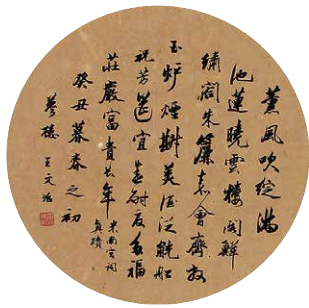 薰風吹綻滿
池蓮曉雲樓閣鮮
繡閣朱簾嘉會齊
玉炉煙斟美酒泛觥船
祝芳筵宜春耐夏多福
莊嚴富貴長年
米南宮詞
真蹟
癸丑暮春之初
夢樓王文治